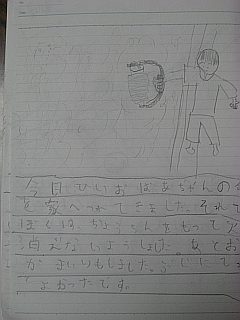 今日ひいおばあちゃんの
を家へつれてきました。それで
ぼくは、ちょうちんをもって火
点えないようした。あとお
がまいりもしました。ぶじにで
てよかったです。